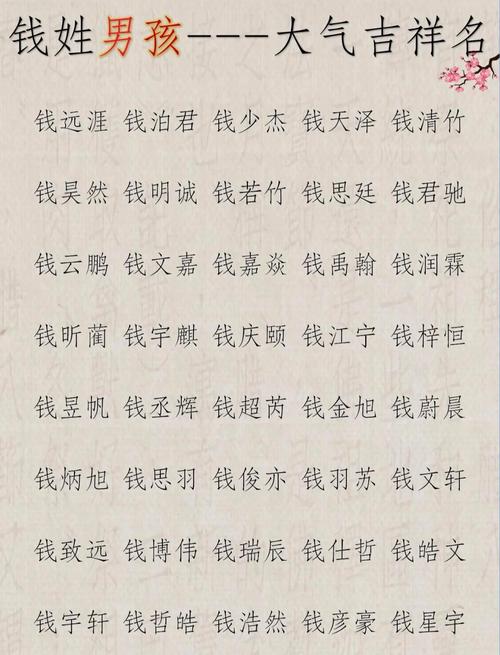 钱姓男孩---大气吉祥名
钱远涯 钱泊君 钱少杰 钱天泽 钱清竹
钱昊然 钱明诚 钱若竹 钱思廷 钱君驰
钱云鹏 钱文嘉 钱嘉焱 钱禹翰 钱润霖
钱昕蔺 钱宇麒 钱庆颐 钱江宁 钱梓恒
钱昱帆 钱丞辉 钱超芮 钱金旭 钱蔚晨
钱炳旭 钱思羽 钱俊亦 钱羽苏 钱文轩
钱致远 钱博伟 钱瑞辰 钱仕哲 钱皓文
钱宇轩 钱哲皓 钱浩然 钱彦豪 钱星宇